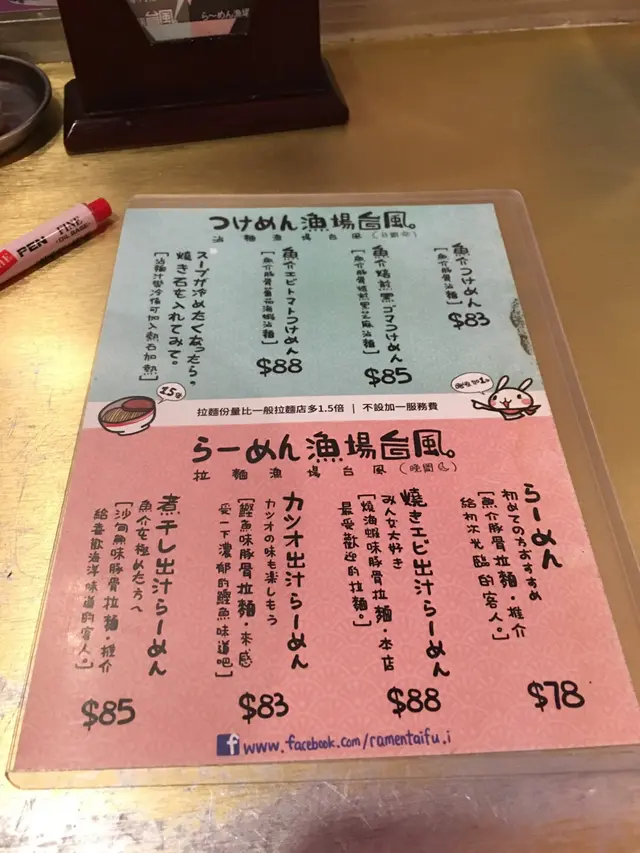 台風
らーめん漁場
PEN
FINE
OIL BASE
つけめん漁場台風。
沾麵漁場台風(日間☼)
魚介つけめん
[魚介豚骨沾麵]
$83
魚介焙煎黒ゴマつけめん
[魚介豚骨焙煎黑芝麻沾麵]
$85
魚介エビトマトつけめん
[魚介豚骨蕃茄海蝦沾麵]
$88
スープが冷めたくなったら。
焼き石を入れてみて。
[沾麵汁變冷後可加入熱石加熱]
1.5倍
拉麵份量比一般拉麵店多1.5倍 | 不設加一服務費
らーめん漁場台風。
拉麵漁場台風(晚間☾)
らーめん
初めての方おすすめ
[魚介豚骨拉麵・推介
給初次光臨的客人。]
$78
焼きエビ出汁らーめん
みんな大好き
[燒海蝦味豚骨拉麵・本店
最受歡迎的拉麵。]
$88
カツオ出汁らーめん
カツオの味も楽しもう
[鰹魚味豚骨拉麵・來感
受一下濃郁的鰹魚味道吧]
$83
煮干し出汁らーめん
魚介を極めた方へ
[沙甸魚味豚骨拉麵・推介
給喜歡海洋味道的客人。]
$85
f www.facebook.com/ramentaifu.i